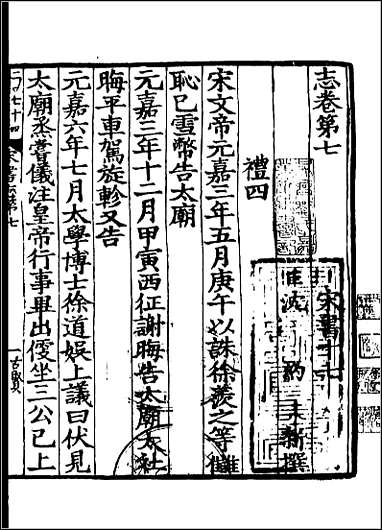 志卷第七　宋書十七
臣沈　約　新撰
禮四
宋文帝元嘉三年五月庚午以誅徐羨之等讎
恥已雪幣告太廟
元嘉三年十二月甲寅西征謝晦告太廟太社
晦平車駕旋軫又告
元嘉六年七月太學博士徐道娛上議曰伏見
太廟烝嘗儀注皇帝行事畢出便坐三公已上